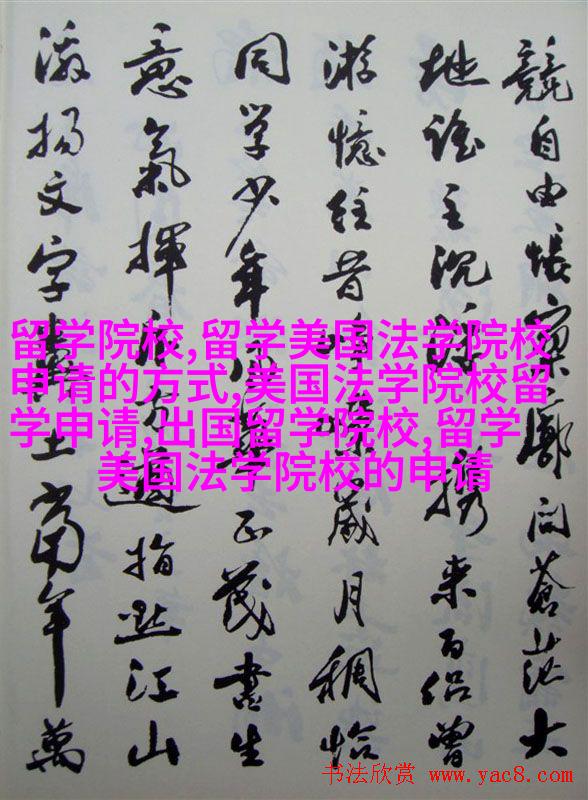 競自由悵寥廓问蒼茫大
地谁主沉浮携来百侣曾
游憶往昔峥嵘歲月稠恰
同学少年风華正茂書生
意氣揮斥方遒指点江山
激揚文字糞土當年萬
留学院校,留学美国法学院校
申请的方式,美国法学院校留
学申请,出国留学院校,留学
美国法学院校的申请
书法欣赏 www.yac8.com